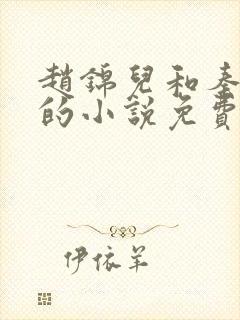 趙錦兒和秦
的小說免費
伊依羊